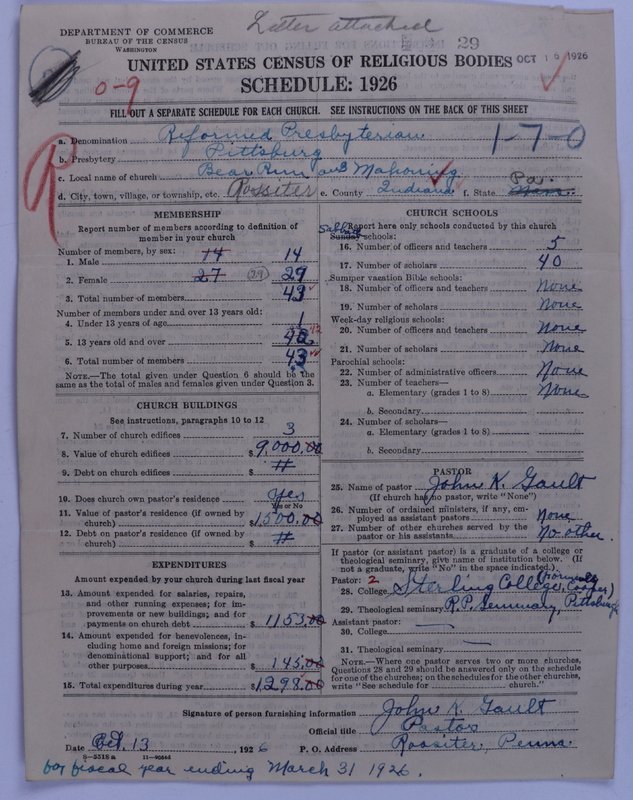 Letter attached
DEPARTMENT OF COMMERCE
BUREAU OF THE CENSUS
WASHINGTON
29
UNITED STATES CENSUS OF RELIGIOUS BODIES
OCT 16 1926
SCHEDULE: 1926
0-9
FILL OUT A SEPARATE SCHEDULE FOR EACH CHURCH. SEE INSTRUCTIONS ON THE BACK OF THIS SHEET
a. Denomination Reformed Presbyterian
1-7-0
b. Presbytery Pittsburg
c. Local name of church Bear Run and Mahoning
d. City, town, village, or township, etc. Rossiter e. County Indiana f. State Pa.
MEMBERSHIP
Report number of members according to definition of member in your church
Number of members, by sex:
1. Male 14 14
2. Female 27 (29) 29
3. Total number of members 43
Number of members under and over 13 years old:
4. Under 13 years of age 1
5. 13 years old and over 42
6. Total number of members 43
NOTE.—The total given under Question 6 should be the
same as the total of males and females given under Question 3.
CHURCH BUILDINGS
See instructions, paragraphs 10 to 12
7. Number of church edifices 3
8. Value of church edifices $ 9,000.00
9. Debt on church edifices $ #
10. Does church own pastor's residence Yes
Yes or No
11. Value of pastor's residence (if owned by
church) $ 1500.00
12. Debt on pastor's residence (if owned by
church) $ #
EXPENDITURES
Amount expended by your church during last fiscal year
13. Amount expended for salaries, repairs,
and other running expenses; for im-
provements or new buildings; and for
payments on church debt $ 1153.00
14. Amount expended for benevolences, in-
cluding home and foreign missions; for
denominational support; and for all
other purposes $ 145.00
15. Total expenditures during year $ 1298.00
CHURCH SCHOOLS
Report here only schools conducted by this church
Sabbath Sunday schools:
16. Number of officers and teachers 5
17. Number of scholars 40
Summer vacation Bible schools:
18. Number of officers and teachers None
19. Number of scholars None
Week-day religious schools:
20. Number of officers and teachers None
21. Number of scholars None
Parochial schools:
22. Number of administrative officers None
23. Number of teachers—
a. Elementary (grades 1 to 8) None
b. Secondary
24. Number of scholars—
a. Elementary (grades 1 to 8)
b. Secondary
PASTOR
25. Name of pastor John K. Gault
(If church has no pastor, write "None")
26. Number of ordained ministers, if any, em-
ployed as assistant pastors None
27. Number of other churches served by the
pastor or his assistants No other.
If pastor (or assistant pastor) is a graduate of a college or
theological seminary, give name of institution below. (If
not a graduate, write "No" in the space indicated.)
Pastor: 2
28. College Sterling College, (formerly Cooper)
29. Theological seminary R.P. Seminary, Pittsburgh
Assistant pastor:
30. College
31. Theological seminary
NOTE.—Where one pastor serves two or more churches,
Questions 28 and 29 should be answered only on the schedule
for one of the churches; on the schedules for the other churches,
write "See schedule for church."
Signature of person furnishing information John K. Gault
Official title Pastor
Date Oct. 13, 1926 P. O. Address Rossiter, Penna
8-5518a 11-90844
for fiscal year ending March 31 1926.